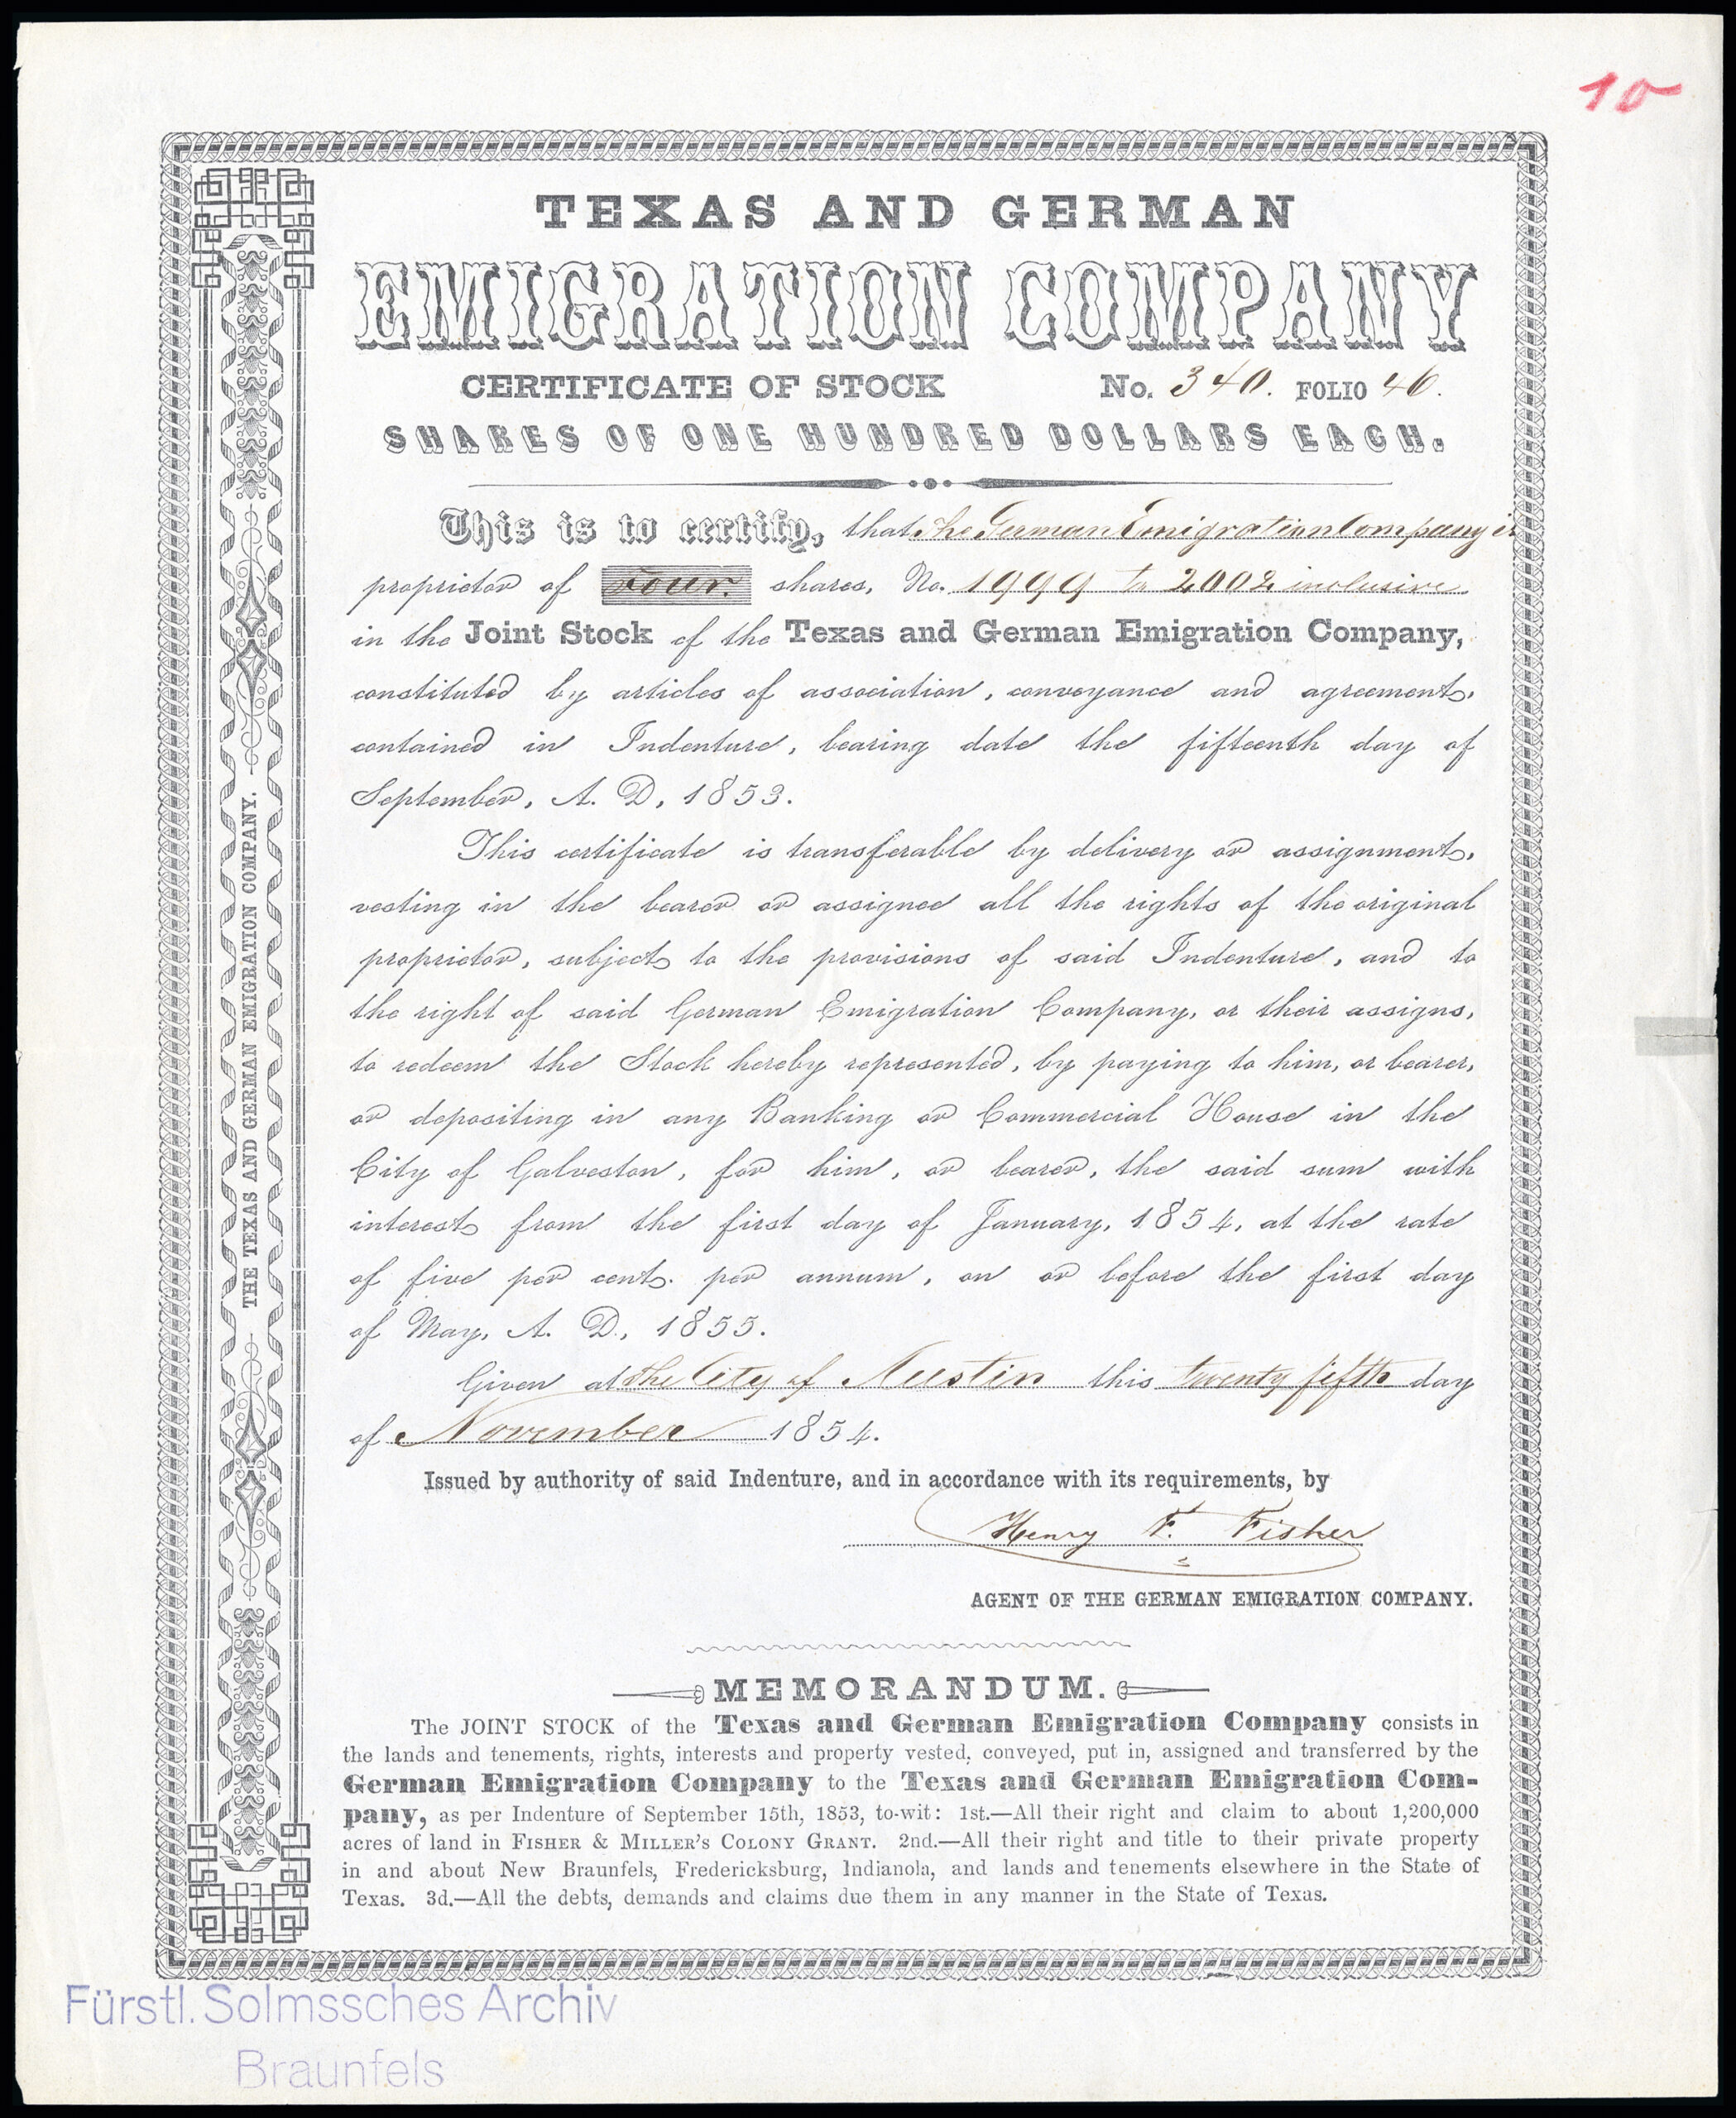 10
TEXAS AND GERMAN
EMIGRATION COMPANY
CERTIFICATE OF STOCK No. 340. FOLIO 46.
SHARES OF ONE HUNDRED DOLLARS EACH.
This is to certify, that the German Emigration Company is
proprietor of four shares, No. 1999 to 2002 inclusive
in the Joint Stock of the Texas and German Emigration Company,
constituted by articles of association, conveyance and agreement,
contained in Indenture, bearing date the fifteenth day of
September, A. D, 1853.
This certificate is transferable by delivery or assignment,
vesting in the bearer or assignee all the rights of the original
proprietor, subject to the provisions of said Indenture, and to
the right of said German Emigration Company, or their assigns,
to redeem the Stock hereby represented, by paying to him, or bearer,
or depositing in any Banking or Commercial House in the
City of Galveston, for him, or bearer, the said sum with
interest from the first day of January, 1854, at the rate
of five per cent. per annum, on or before the first day
of May, A. D., 1855.
Given at the City of Austin this twenty fifth day
of November 1854.
Issued by authority of said Indenture, and in accordance with its requirements, by
Henry F. Fisher
AGENT OF THE GERMAN EMIGRATION COMPANY.
MEMORANDUM.
The JOINT STOCK of the Texas and German Emigration Company consists in
the lands and tenements, rights, interests and property vested, conveyed, put in, assigned and transferred by the
German Emigration Company to the Texas and German Emigration Com-
pany, as per Indenture of September 15th, 1853, to-wit: 1st.—All their right and claim to about 1,200,000
acres of land in FISHER & MILLER'S COLONY GRANT. 2nd.—All their right and title to their private property
in and about New Braunfels, Fredericksburg, Indianola, and lands and tenements elsewhere in the State of
Texas. 3d.—All the debts, demands and claims due them in any manner in the State of Texas.
THE TEXAS AND GERMAN EMIGRATION COMPANY.
Fürstl. Solmssches Archiv
Braunfels